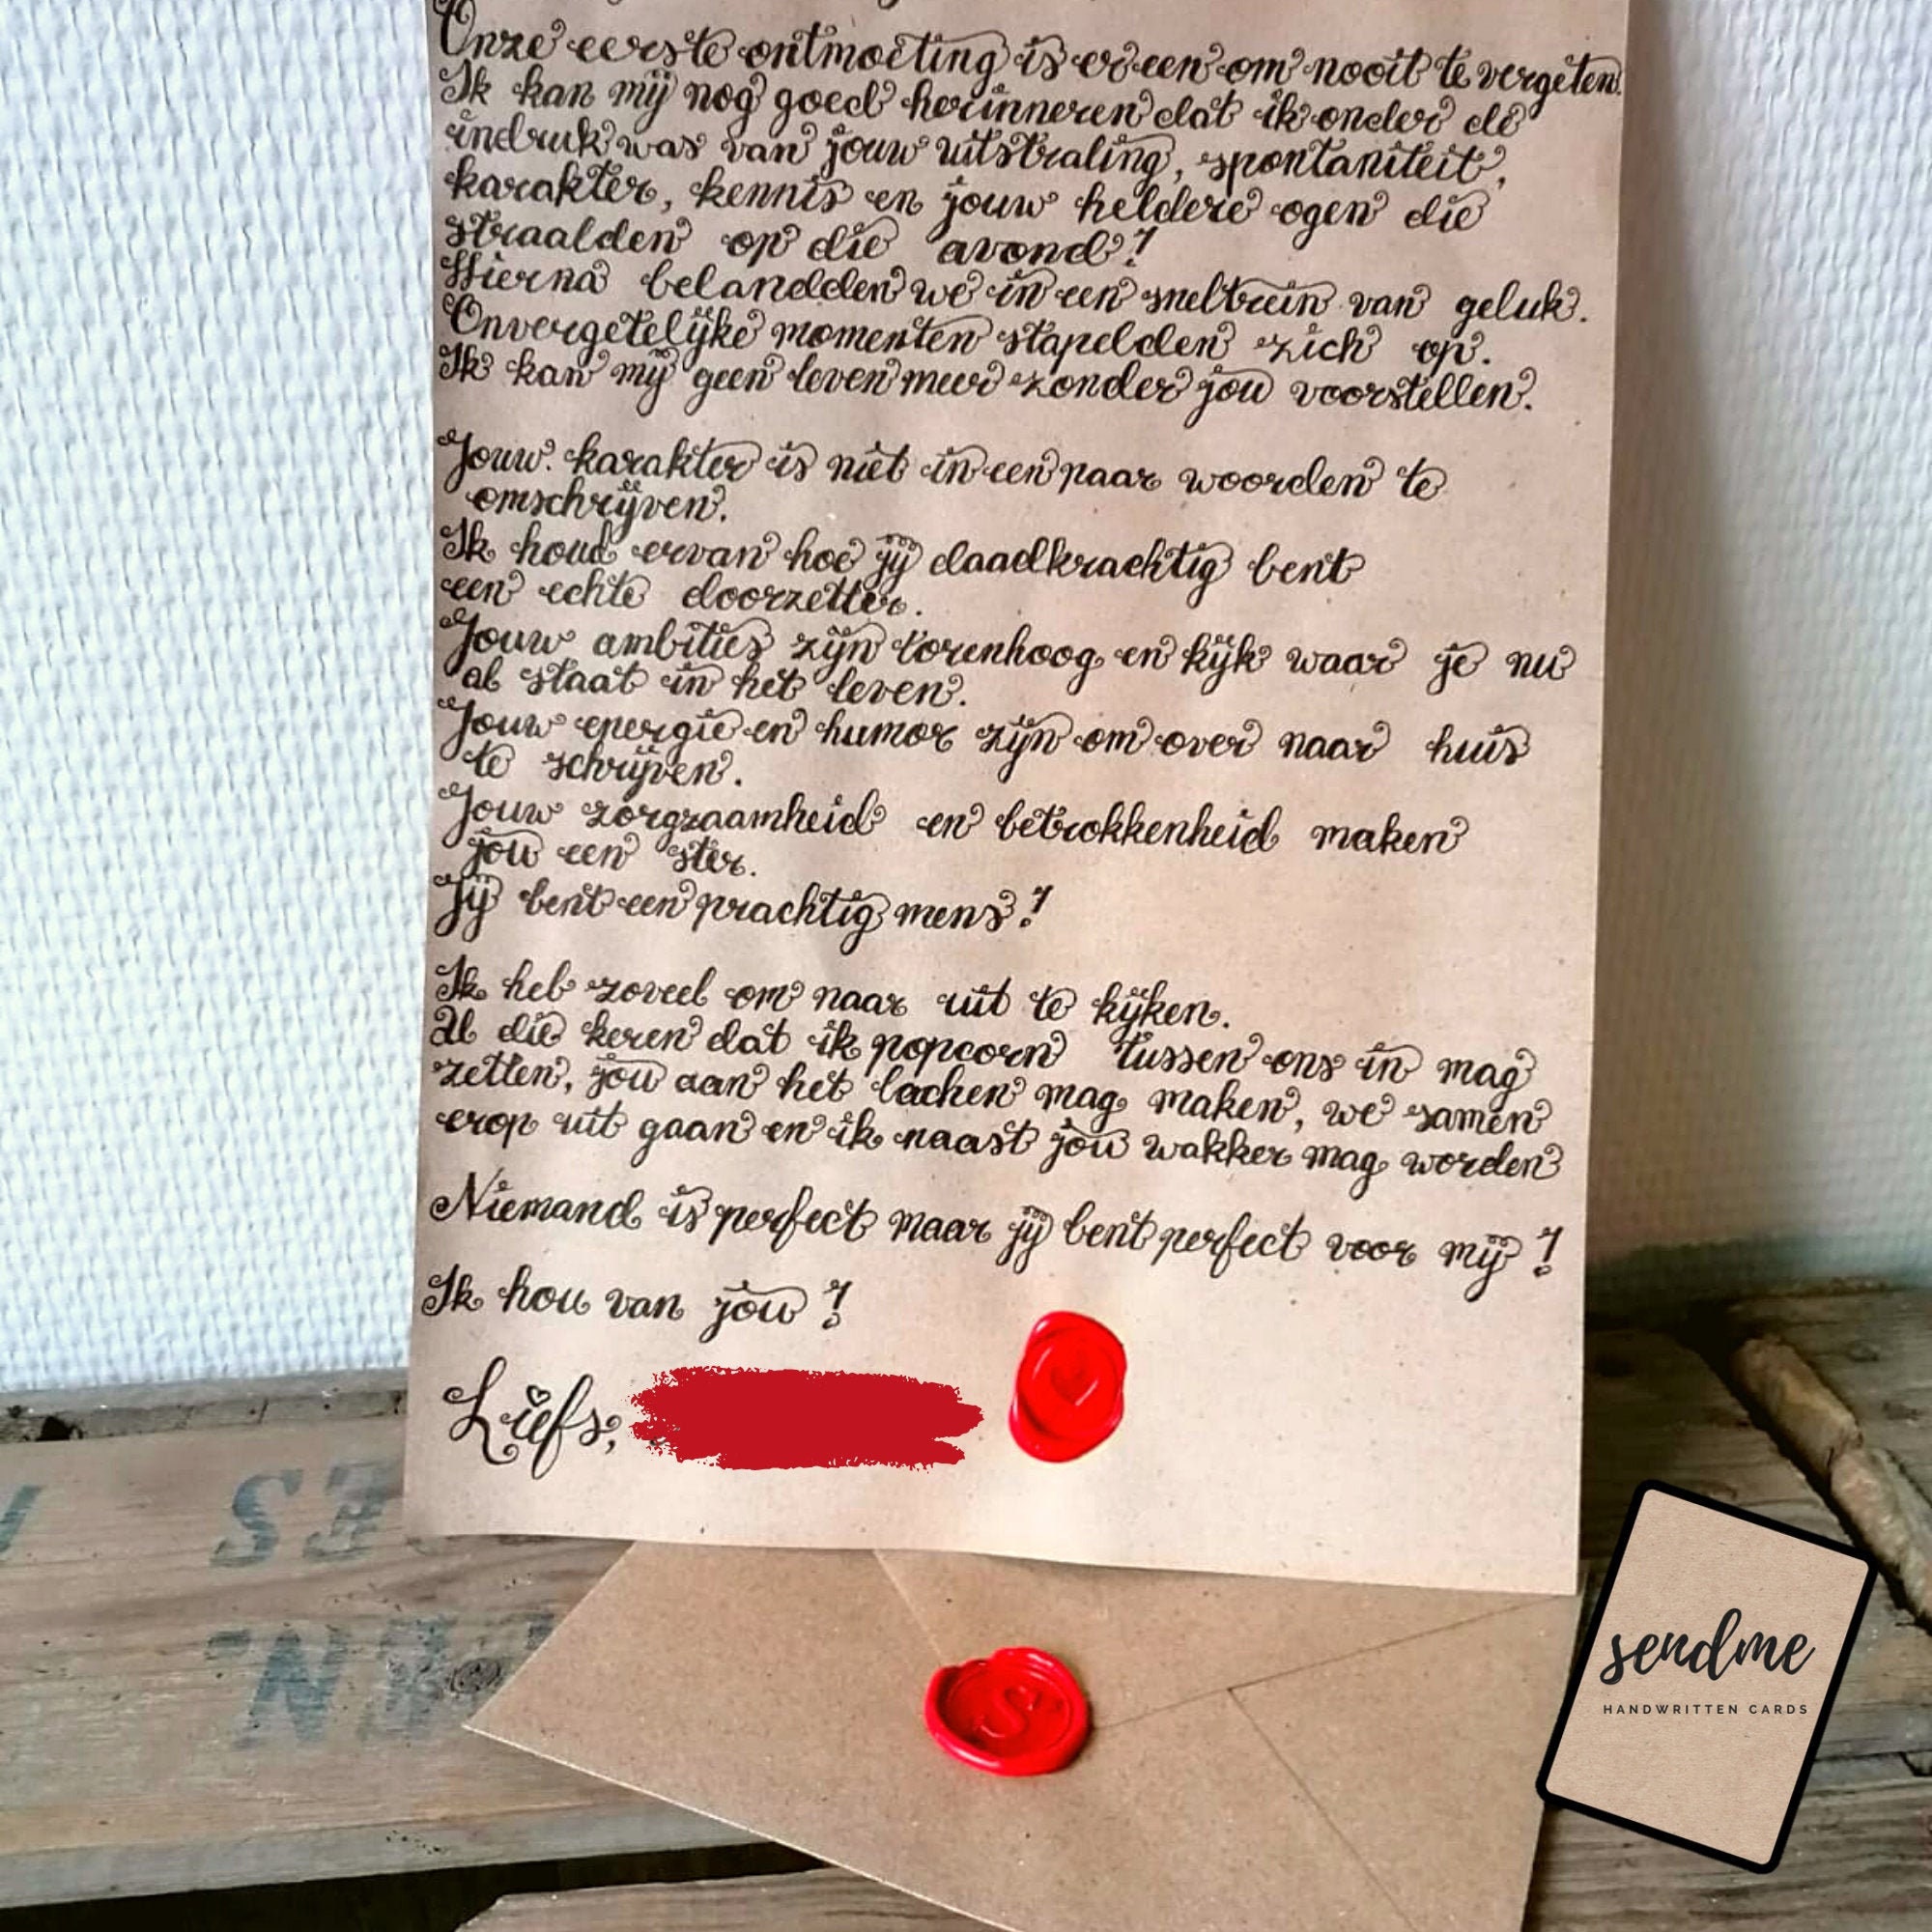 Onze eerste ontmoeting is er een om nooit te vergeten.
Ik kan mij nog goed herinneren dat ik onder de
indruk was van jouw uitstraling, spontaniteit,
karakter, kennis en jouw heldere ogen die
straalden op die avond!
Hierna belandden we in een sneltrein van geluk.
Onvergetelijke momenten stapelden zich op.
Ik kan mij geen leven meer zonder jou voorstellen.
Jouw karakter is niet in een paar woorden te
omschrijven.
Ik houd ervan hoe jij daadkrachtig bent
een echte doorzetter.
Jouw ambities zijn torenhoog en kijk waar je nu
al staat in het leven.
Jouw energie en humor zijn om over naar huis
te schrijven.
Jouw zorgzaamheid en betrokkenheid maken
jou een ster.
Jij bent een prachtig mens!
Ik heb zoveel om naar uit te kijken.
Al die keren dat ik popcorn tussen ons in mag
zetten, jou aan het lachen mag maken, we samen
erop uit gaan en ik naast jou wakker mag worden
Niemand is perfect maar jij bent perfect voor mij!
Ik hou van jou!
Liefs,
S
sendme
HANDWRITTEN CARDS